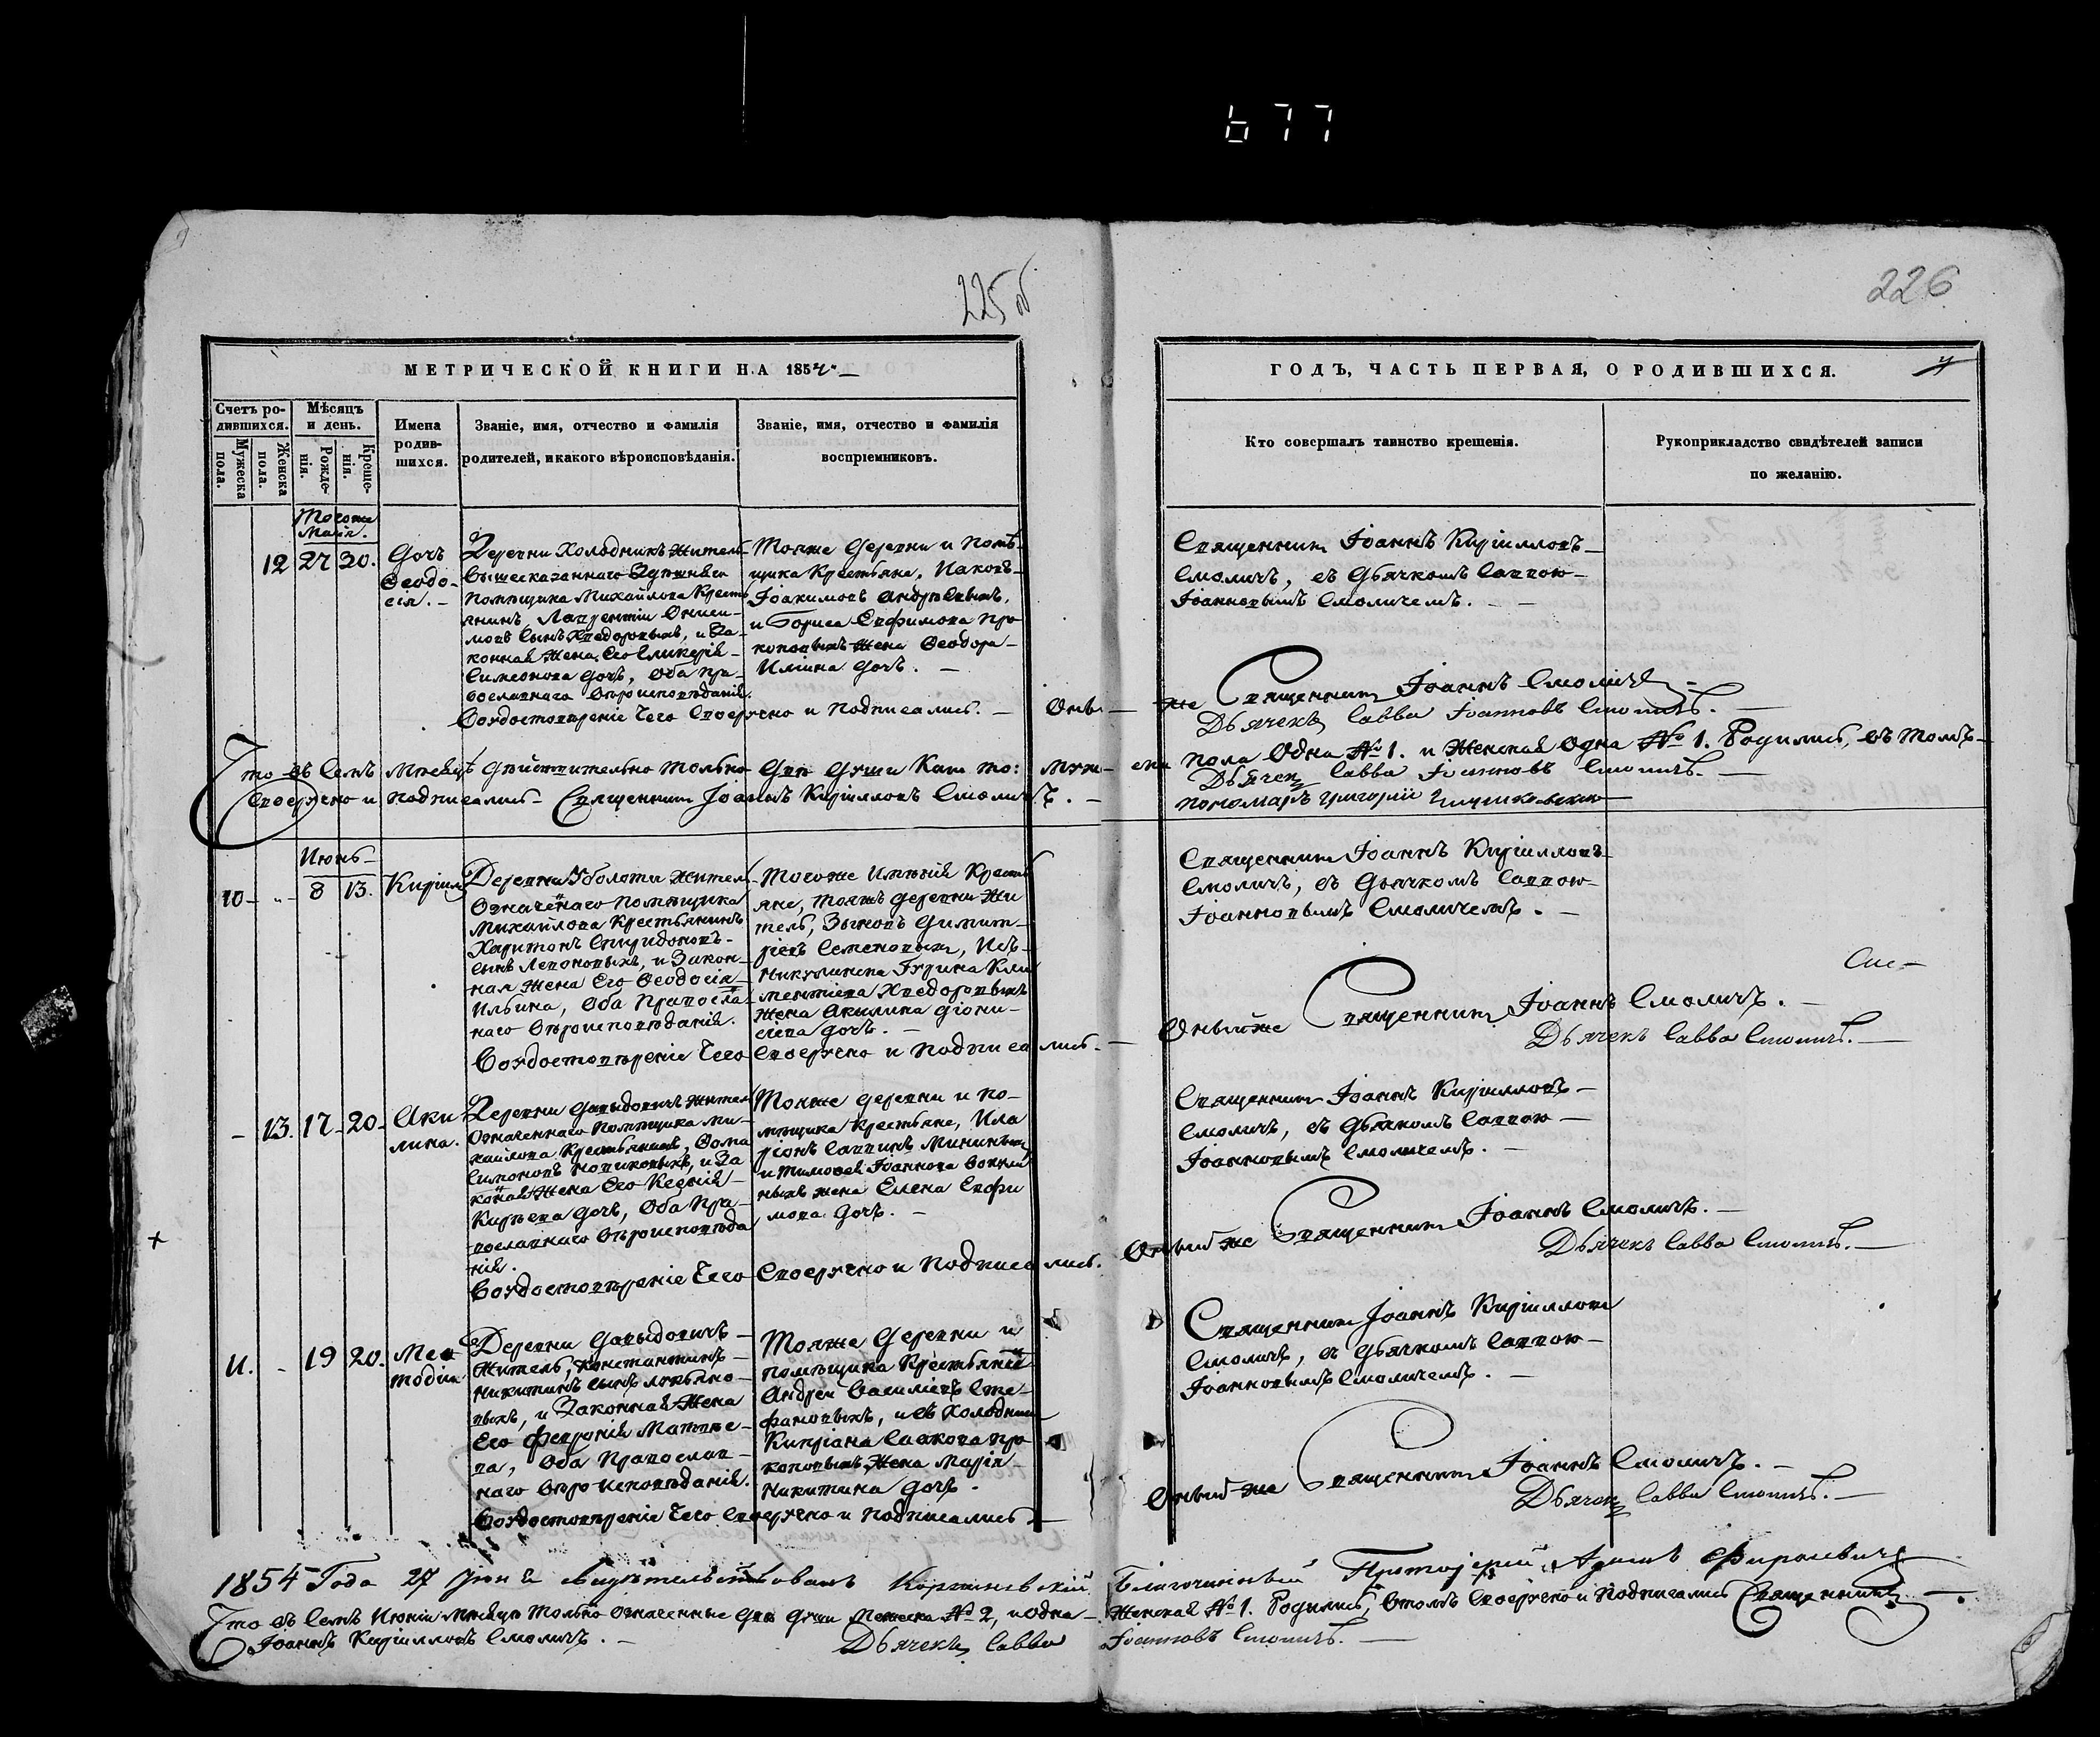 677
225 об
226
МЕТРИЧЕСКОЙ КНИГИ НА 1854.
ГОДЪ, ЧАСТЬ ПЕРВАЯ, О РОДИВШИХСЯ.
Счетъ родившихся.
Мужеска пола.
Женска пола.
Мѣсяцъ и день.
Рожденія.
Крещенія.
Имена родившихся.
Званіе, имя, отчество и фамилія
родителей, и какого вѣроисповѣданія.
Званіе, имя, отчество и фамилія
воспріемниковъ.
Кто совершалъ таинство крещенія.
Рукоприкладство свидѣтелей записи
по желанію.
Тогоже
Маія.
12 27 30.
Дочь
Ѳеодо-
сія.
Деревни Холодникъ житель
вышесказаннаго
Помѣщика Михайлова Кресть
янинъ, Лаврентій Ониси-
мовъ сынъ Хведоровыхъ, и За-
конная жена Его Гликерія
Симеонова дочь, Оба Пра-
вославнаго вѣроисповѣданія.
Тояже деревни и Помѣ-
щика Крестьяне, Иаковъ
Іоакимовъ Андрѣевыхъ,
и Бориса Ефимова Про
коповыхъ жена Ѳеодора
Иліина дочь.
Священникъ Іоаннъ Кирилловъ
Смоличъ, съ дьячкомъ Саввою
Іоанновымъ Смоличемъ.
Воудостовѣреніе Чего Своеручно и Подписались. Оный же Священникъ Іоаннъ Смоличъ
Дьячекъ Савва Іоанновъ Смоличъ.
Что въ Семъ мѣсяцѣ дѣйствительно только двѣ души Какъ то: муж- ска пола Одна № 1. и Женская одна № 1. Родились, въ томъ
Своеручно и подписались Священникъ Іоаннъ Кирилловъ Смоличъ. Дьячекъ Савва Іоанновъ Смоличъ.
пономарь Григорій
Июнь
10 8 13.
Кириллъ
Деревни Уболоти житель
Означеннаго Помѣщика
Михайлова Крестьянинъ
Харитонъ Спиридоновъ
сынъ Левоновыхъ, и Закон-
ная жена Его Ѳеодосія
Ильина, Оба Правосла-
наго вѣроисповѣданія.
Тогоже Имѣнія Кресть
яне, тояжъ деревни Жи
тель, Зыновъ Димит-
ріевъ Семеновыхъ, Изъ
Никулинска Гурина Кли
ментіева Хведоровыхъ
жена Акилина Діони-
сіева дочь.
Священникъ Іоаннъ Кирилловъ
Смоличъ, съ дьячкомъ Саввою
Іоанновымъ Смоличемъ.
Воудостовѣреніе Чего Своеручно и Подписались. Оный же Священникъ Іоаннъ Смоличъ.
Дьячекъ Савва Смоличъ.
13. 17 20.
Аки
лина.
Деревни Давыдовичъ житель
Означеннаго помѣщика Ми-
хайлова Крестьянинъ, Ѳома
Симоновъ Новиковыхъ, и За
конная жена Его Ксенія
Кирѣева дочь, Оба Пра-
вославнаго вѣроисповѣда
нія.
Тояже деревни и по-
мѣщика Крестьяне, Ила
ріонъ Саввинъ Мининыхъ
и Тимоѳея Іоаннова
ныхъ жена Елена Ефи
мова дочь.
Священникъ Іоаннъ Кирилловъ
Смоличъ, съ дьячкомъ Саввою
Іоанновымъ Смоличемъ.
Воудостовѣреніе Чего Своеручно и Подписались. Оный же Священникъ Іоаннъ Смоличъ.
Дьячекъ Савва Смоличъ.
11. 19 20.
Меѳ
тодій
Деревни Давыдовичъ
житель, Константинъ
Никитинъ сынъ Лукьяно-
выхъ, и Законная жена
Его Февронія Матвѣе-
ва, Оба Православ-
наго вѣроисповѣданія.
Тояже Деревни и
помѣщика Крестьяне
Андрей Василіевъ Сте-
фановыхъ, и въ Холодники
Кипріана Савкова Про
коповыхъ жена Марія
Никитина дочь.
Священникъ Іоаннъ Кирилловъ
Смоличъ, съ дьячкомъ Саввою
Іоанновымъ Смоличемъ.
Воудостовѣреніе Чего Своеручно и Подписались. Оный же Священникъ Іоаннъ Смоличъ.
Дьячекъ Савва Смоличъ.
1854 Года 27 Іюня Свидѣтельствовалъ Благочинный Протоіерей
Что въ Семъ Июніи мѣсяцѣ только означенные двѣ души Мужеска № 2, и одна Женская № 1. Родились, втомъ Своеручно и Подписались Священникъ
Іоаннъ Кирилловъ Смоличъ. Дьячекъ Савва Іоанновъ Смоличъ.